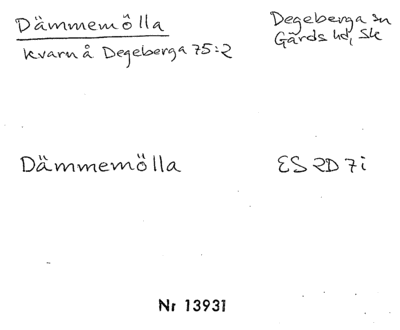 Dämmemölla
kvarn å Degeberga 75:2
Degeberga sn
Gärds hd, Sk
Dämmemölla
ES 2D 7i
Nr 13931